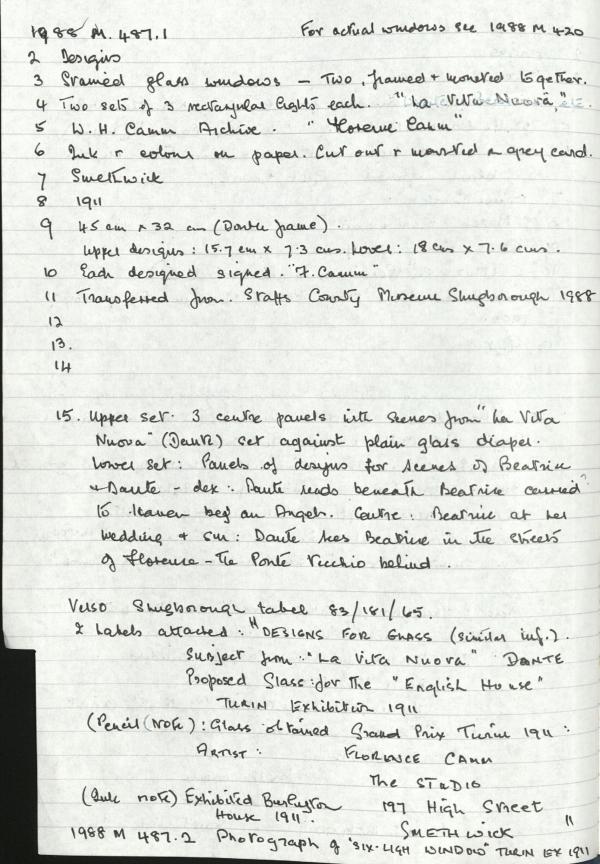 1988 M. 487.1 For actual windows see 1988 M 420
2 Designs
3 Stained glass windows – Two, framed + mounted together.
4 Two sets of 3 rectangular lights each. "La Vita Nuova,"
5 W. H. Camm Archive. "Florence Camm"
6 Ink + colour on paper. Cut out + mounted on grey card.
7 Smethwick
8 1911
9 45 cm x 32 cm (Double frame).
Upper designs: 15.7 cm x 7.3 cms. Lower: 18 cms x 7.6 cms.
10 Each designed signed. "F. Camm"
11 Transferred from. Staffs County Museum Shugborough 1988
12
13.
14
15. Upper set. 3 centre panels with scenes from "La Vita
Nuova" (Dante) set against plain glass diaper.
Lower set: Panels of designs for scenes of Beatrice
+ Dante – dex: Dante reads beneath Beatrice carried
to Heaven by an Angels. Centre: Beatrice at her
wedding + sin: Dante sees Beatrice in the streets
of Florence – the Ponte Vecchio behind.
Verso Shugborough label 83/181/65.
2 Labels attached: "DESIGNS FOR GLASS (similar inf.).
Subject from: "La Vita Nuova" DANTE
Proposed Glass for the "English House"
TURIN Exhibition 1911
(Pencil (Note): Glass obtained Grand Prix Turin 1911:
ARTIST: FLORENCE CAMM
The STUDIO
(Ink note) Exhibited Burlington 197 High Street
House 1911. SMETHWICK "
1988 M 487.2 Photograph of "SIX-LIGH WINDOW" TURIN EX 1911